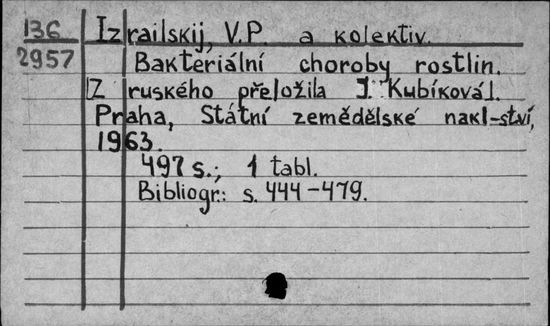 136 Izrailskij, V.P. a kolektiv.
2957 Bakteriální choroby rostlin.
[Z ruského přeložila J. Kubíková].
Praha, Státní zemědělské nakl-ství,
1963.
497 s.; 1 tabl.
Bibliogr.: s. 444-479.